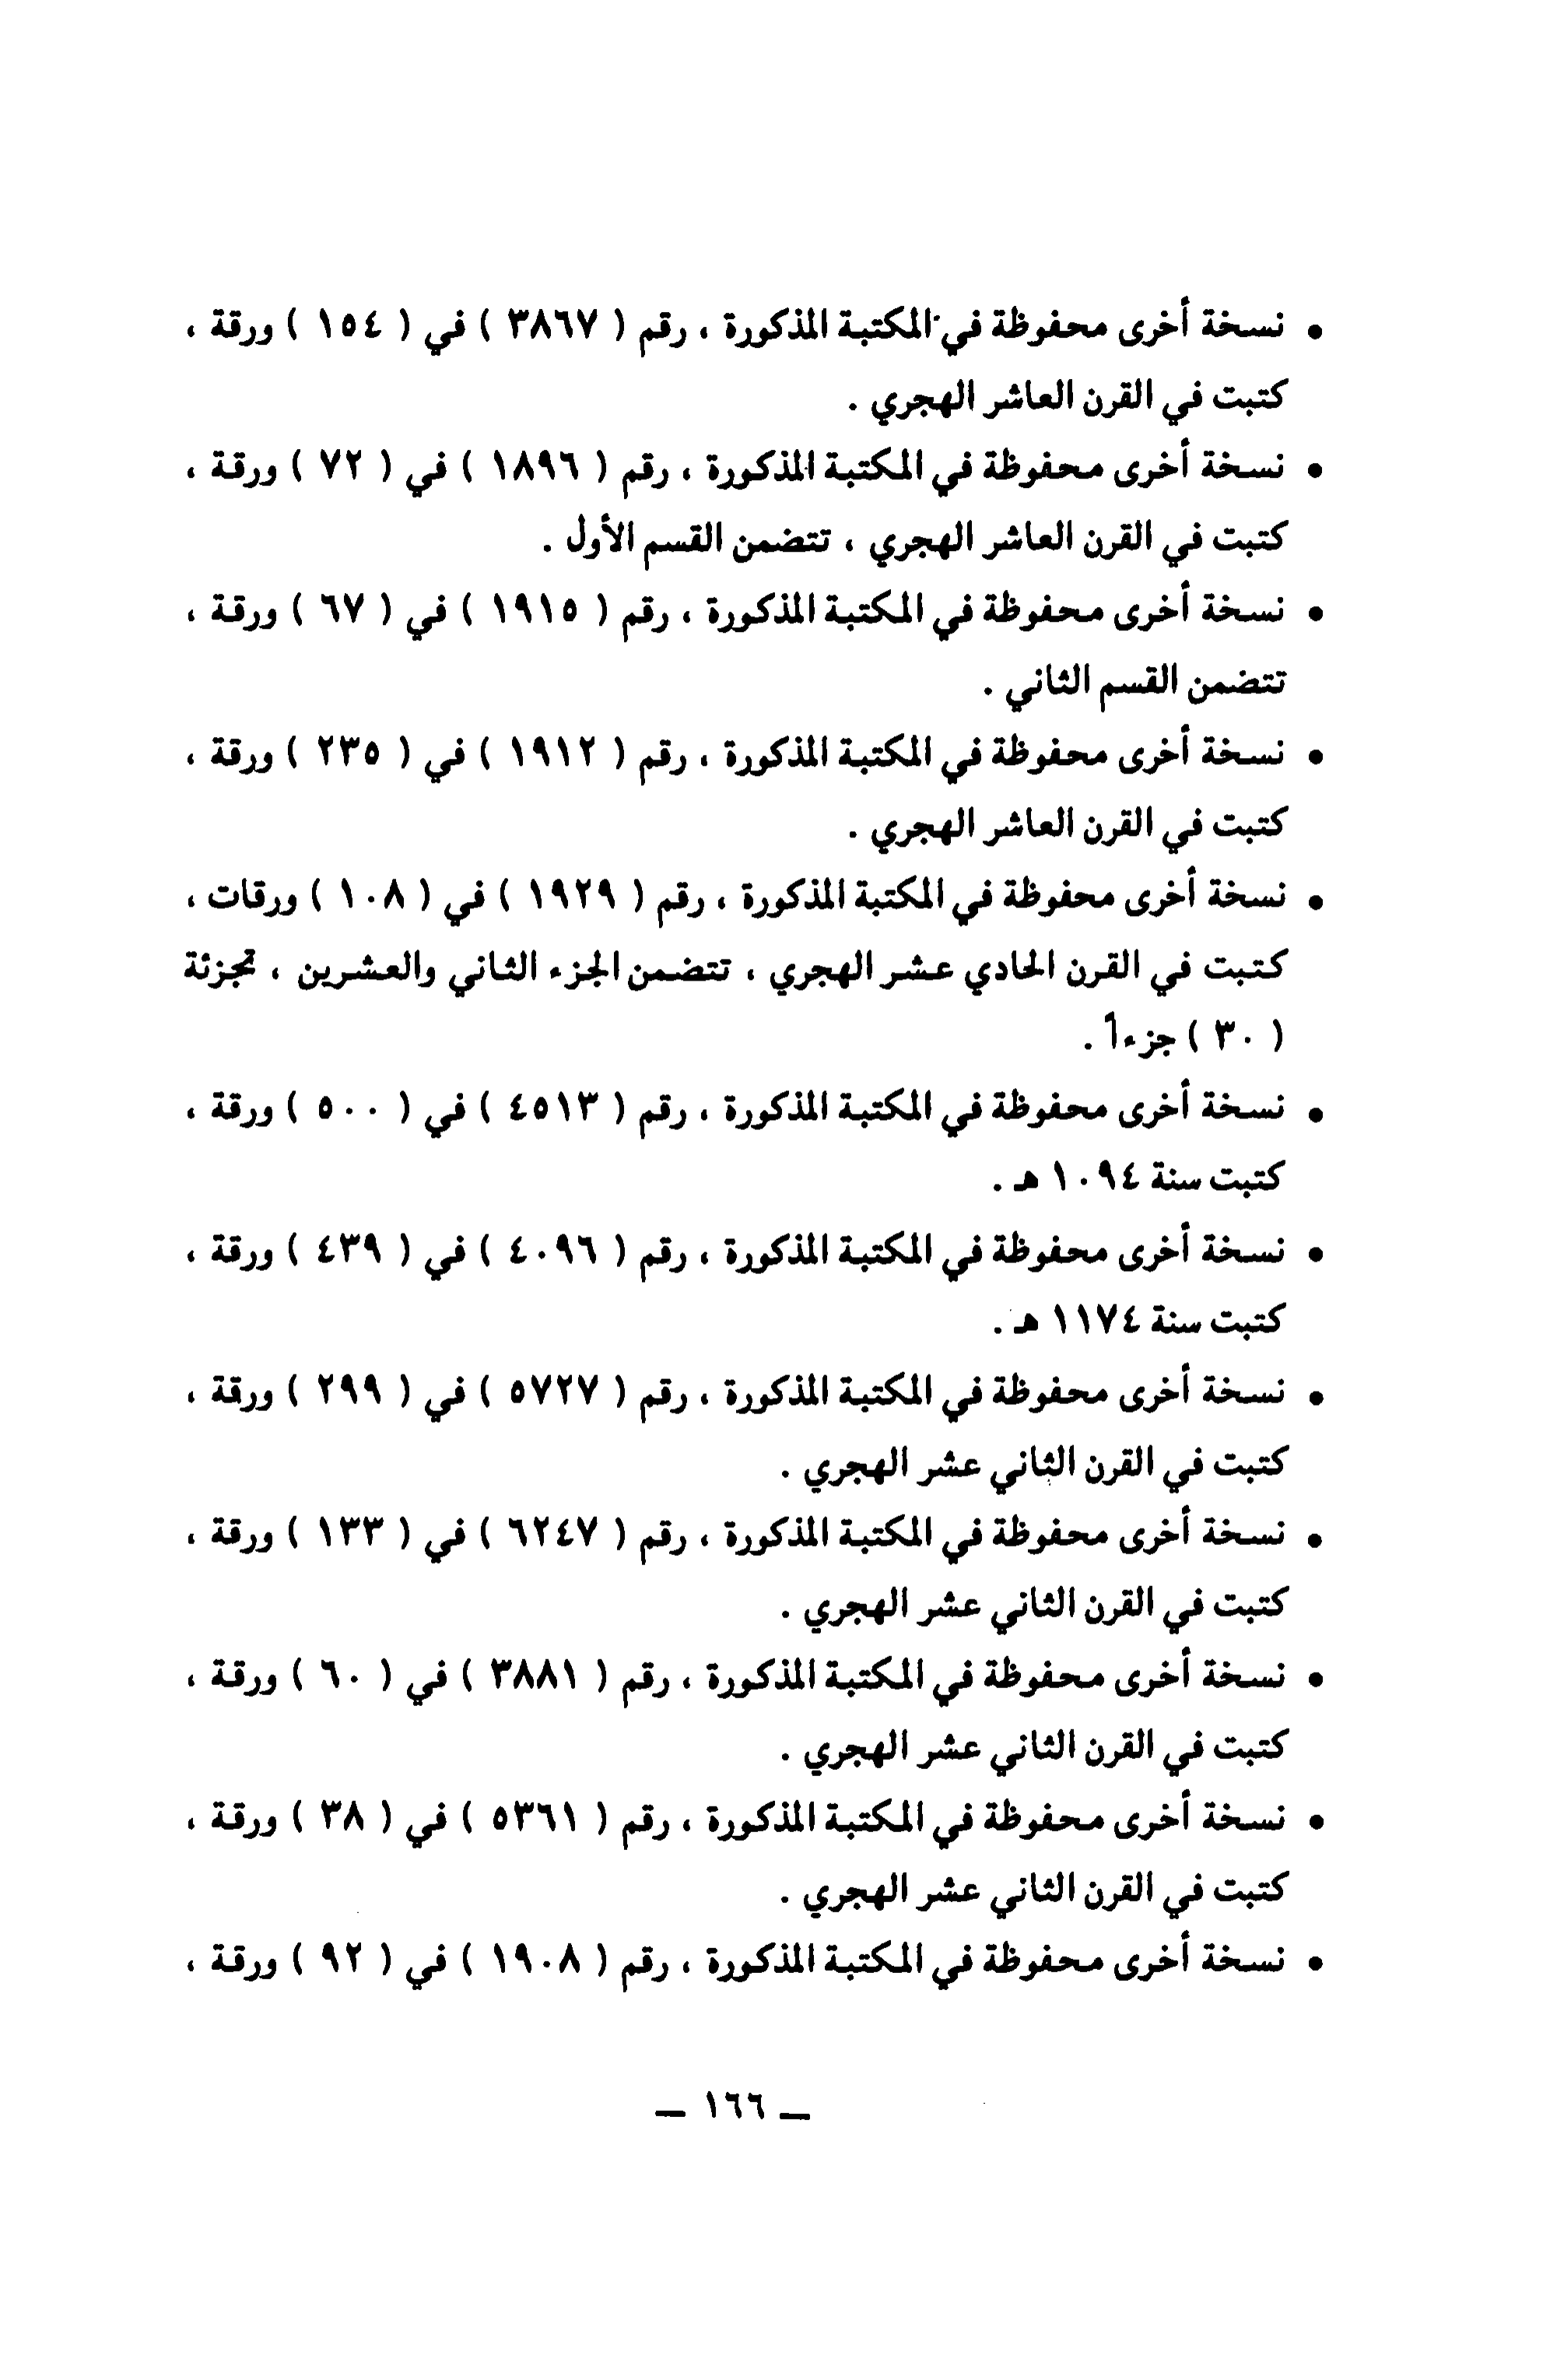 • نسخة أخرى محفوظة في المكتبة المذكورة ، رقم ( ٣٨٦٧ ) في ( ١٥٤ ) ورقة ،
كتبت في القرن العاشر الهجري .
• نسخة أخرى محفوظة في المكتبة المذكورة ، رقم ( ١٨٩٦ ) في ( ٧٢ ) ورقة ،
كتبت في القرن العاشر الهجري ، تتضمن القسم الأول .
• نسخة أخرى محفوظة في المكتبة المذكورة ، رقم ( ١٩١٥ ) في ( ٦٧ ) ورقة ،
تتضمن القسم الثاني .
• نسخة أخرى محفوظة في المكتبة المذكورة ، رقم ( ١٩١٢ ) في ( ٢٣٥ ) ورقة ،
كتبت في القرن العاشر الهجري .
• نسخة أخرى محفوظة في المكتبة المذكورة ، رقم ( ١٩٢٩ ) في ( ١٠٨ ) ورقات ،
كتبت في القرن الحادي عشر الهجري ، تتضمن الجزء الثاني والعشرين ، تجزئة
( ٣٠ ) جزءاً .
• نسخة أخرى محفوظة في المكتبة المذكورة ، رقم ( ٤٥١٣ ) في ( ٥٠٠ ) ورقة ،
كتبت سنة ١٠٩٤ هـ .
• نسخة أخرى محفوظة في المكتبة المذكورة ، رقم ( ٤٠٩٦ ) في ( ٤٣٩ ) ورقة ،
كتبت سنة ١١٧٤ هـ .
• نسخة أخرى محفوظة في المكتبة المذكورة ، رقم ( ٥٧٢٧ ) في ( ٢٩٩ ) ورقة ،
كتبت في القرن الثاني عشر الهجري .
• نسخة أخرى محفوظة في المكتبة المذكورة ، رقم ( ٦٢٤٧ ) في ( ١٣٣ ) ورقة ،
كتبت في القرن الثاني عشر الهجري .
• نسخة أخرى محفوظة في المكتبة المذكورة ، رقم ( ٣٨٨١ ) في ( ٦٠ ) ورقة ،
كتبت في القرن الثاني عشر الهجري .
• نسخة أخرى محفوظة في المكتبة المذكورة ، رقم ( ٥٣٦١ ) في ( ٣٨ ) ورقة ،
كتبت في القرن الثاني عشر الهجري .
• نسخة أخرى محفوظة في المكتبة المذكورة ، رقم ( ١٩٠٨ ) في ( ٩٢ ) ورقة ،
ــ ١٦٦ ــ